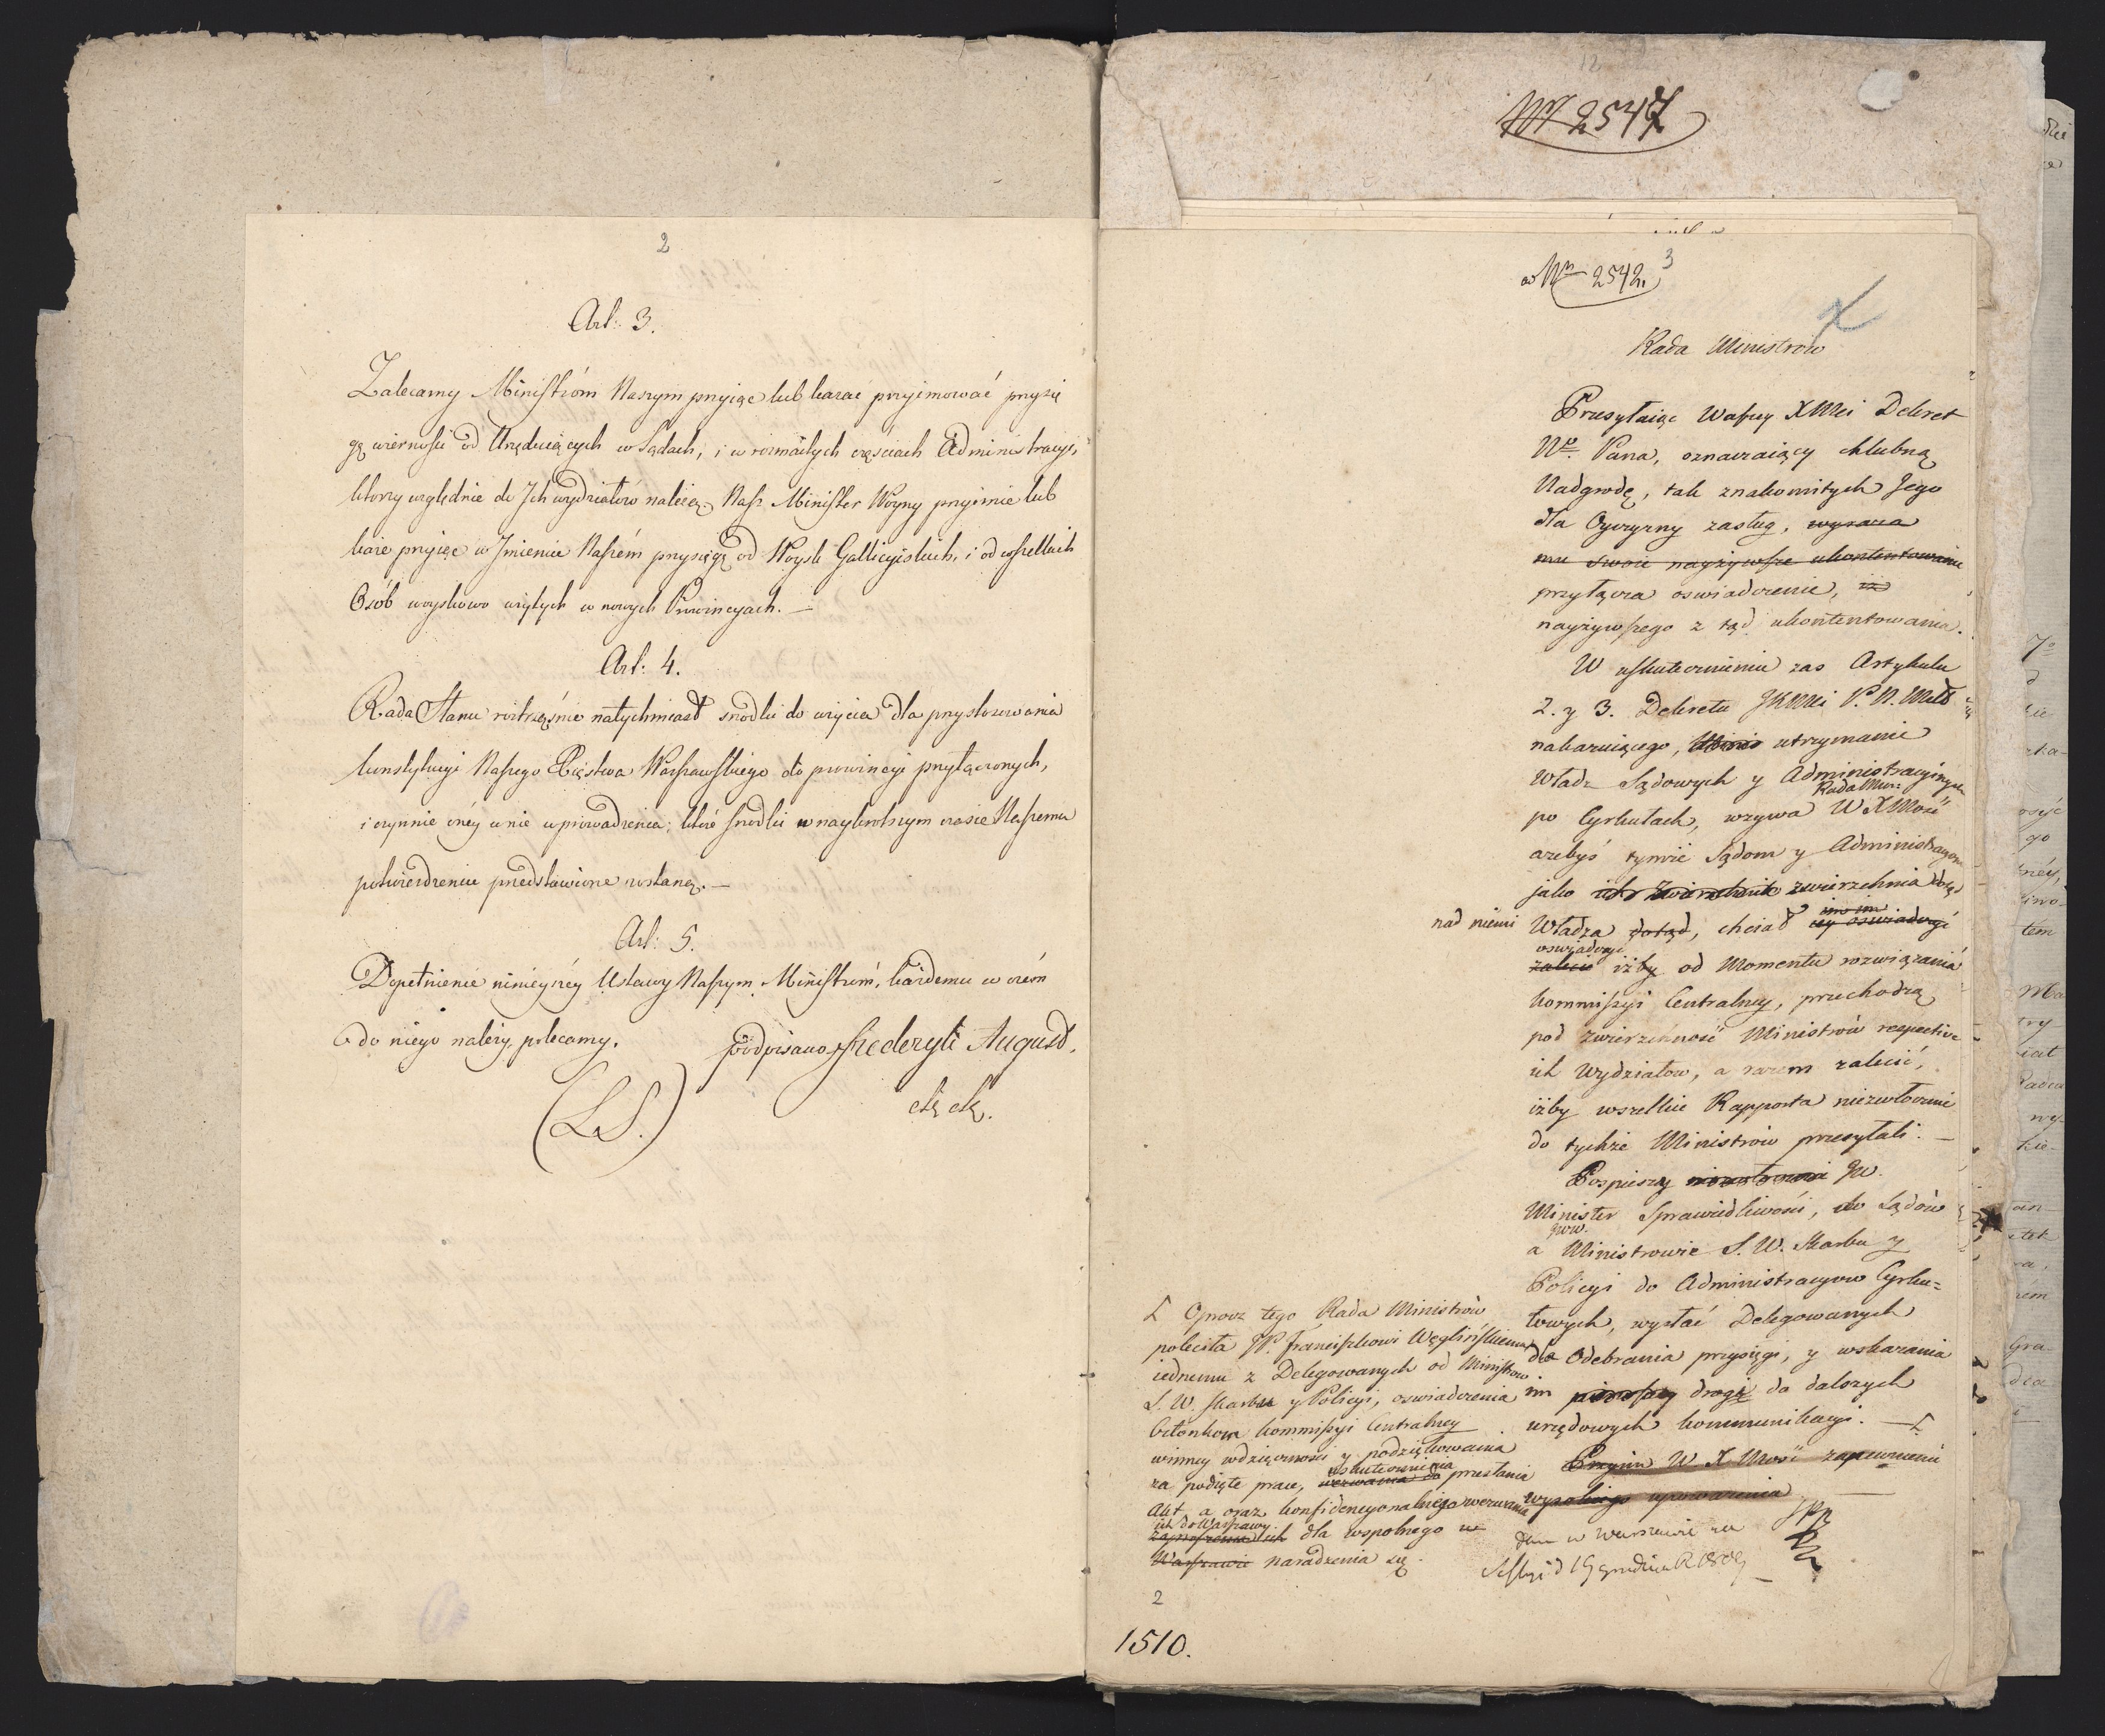 2
Art: 3.
Zalecamy Ministróm Naszym przyiąć lub kazać przyimować przysię
gę wierności od Urzęduiących w Sądach, i w rozmaitych częściach Administracyi,
którzy względnie do Ich wydziałów należą. Nasz Minister Woyny przyimie lub
każe przyiąć w Imieniu Naszém przysięgę od Woysk Gallicyiskich, i od wszelkich
Osób woyskowo użytych w nowych Prowincyach. —
Art: 4.
Rada Stanu roztrząśnie natychmiast srodki do użycia dla przystosowania
konstytucyi Naszego Xięstwa Warszawskiego do prowincyi przyłączonych,
i czynnie onéy w nie wprowadzenia; które srodki w naykrótszym czasie Naszemu
potwierdzeniu przedstawione zostaną. —
Art: 5.
Dopełnienie ninieyszéy Ustawy Naszym Ministróm, każdemu w czém
do niego należy, polecamy.
podpisano Fryderyk August.
(L.S.)
etc etc.
12
Nr 2547
ad Nr 2542.
3
Rada Ministrow
Przesyłaiąc Waszey XMci Dekret
Nº. Pana, oznaczaiący chlubną
Nadgrodę, tak znakomitych Jego
dla Oyczyzny zasług, wyraza
mu swoie nayżywsze ukontentowanie
przyłącza oswiadczenie, iż
nayżywszego z tąd ukontentowania.
W uskutecznieniu zas Artykułu
2. y 3. Dekretu JKMci P. N. Miło
nakazuiącego, utrzymanie
Władz Sądowych y Administracyinych
Rada Min:
po Cyrkułach, wzywa W XMość
ażebyś tymże Sądom y Administracyom
jako ich Zwierzchnik zwierzchnia dotąd
nad niemi Władza dotąd, chciał im oswiadczyć
oswiadczyć
zalecić iżby od Momentu rozwiązania
kommissyi Centralney, przechodzą
pod zwierzchność Ministrów respective
ich Wydziałow, a razem zalecić,
iżby wszelkie Rapporta niezwłocznie
do tychże Ministrów przesyłali. —
Pospieszy niezwłocznie JW.
Minister Sprawiedliwości, do Sądów
JWW.
a Ministrowie S. W. Skarbu y
Policyi do Administracyow Cyrku=
łowych, wysłać Delegowanych
dla Odebrania przysięgi, y wskazania
im pierwszey drogę do dalszych
urzędowych kommunikacyi. —
Przyim W X Mość zapewnienie
wysokiego upoważenia
Dan w Warszawie na
Sessyi d 19 grudnia R 1809
Oprocz tego Rada Ministrów
poleciła JP. Franciszkowi Węglińskiemu
iednemu z Delegowanych od Ministrow
S. W. Skarbu y Policyi, oswiadczenia
Członkom kommissyi Centralney
winney wdzięczności y podziękowania
za podięte prace, uskutecznienia
wezwania do przesłania
Akt, a oraz konfidencyonalnego wezwania
ich do Warszawy
zaproszenia ich dla wspolnego w
Warszawie naradzenia się.
2
1510.